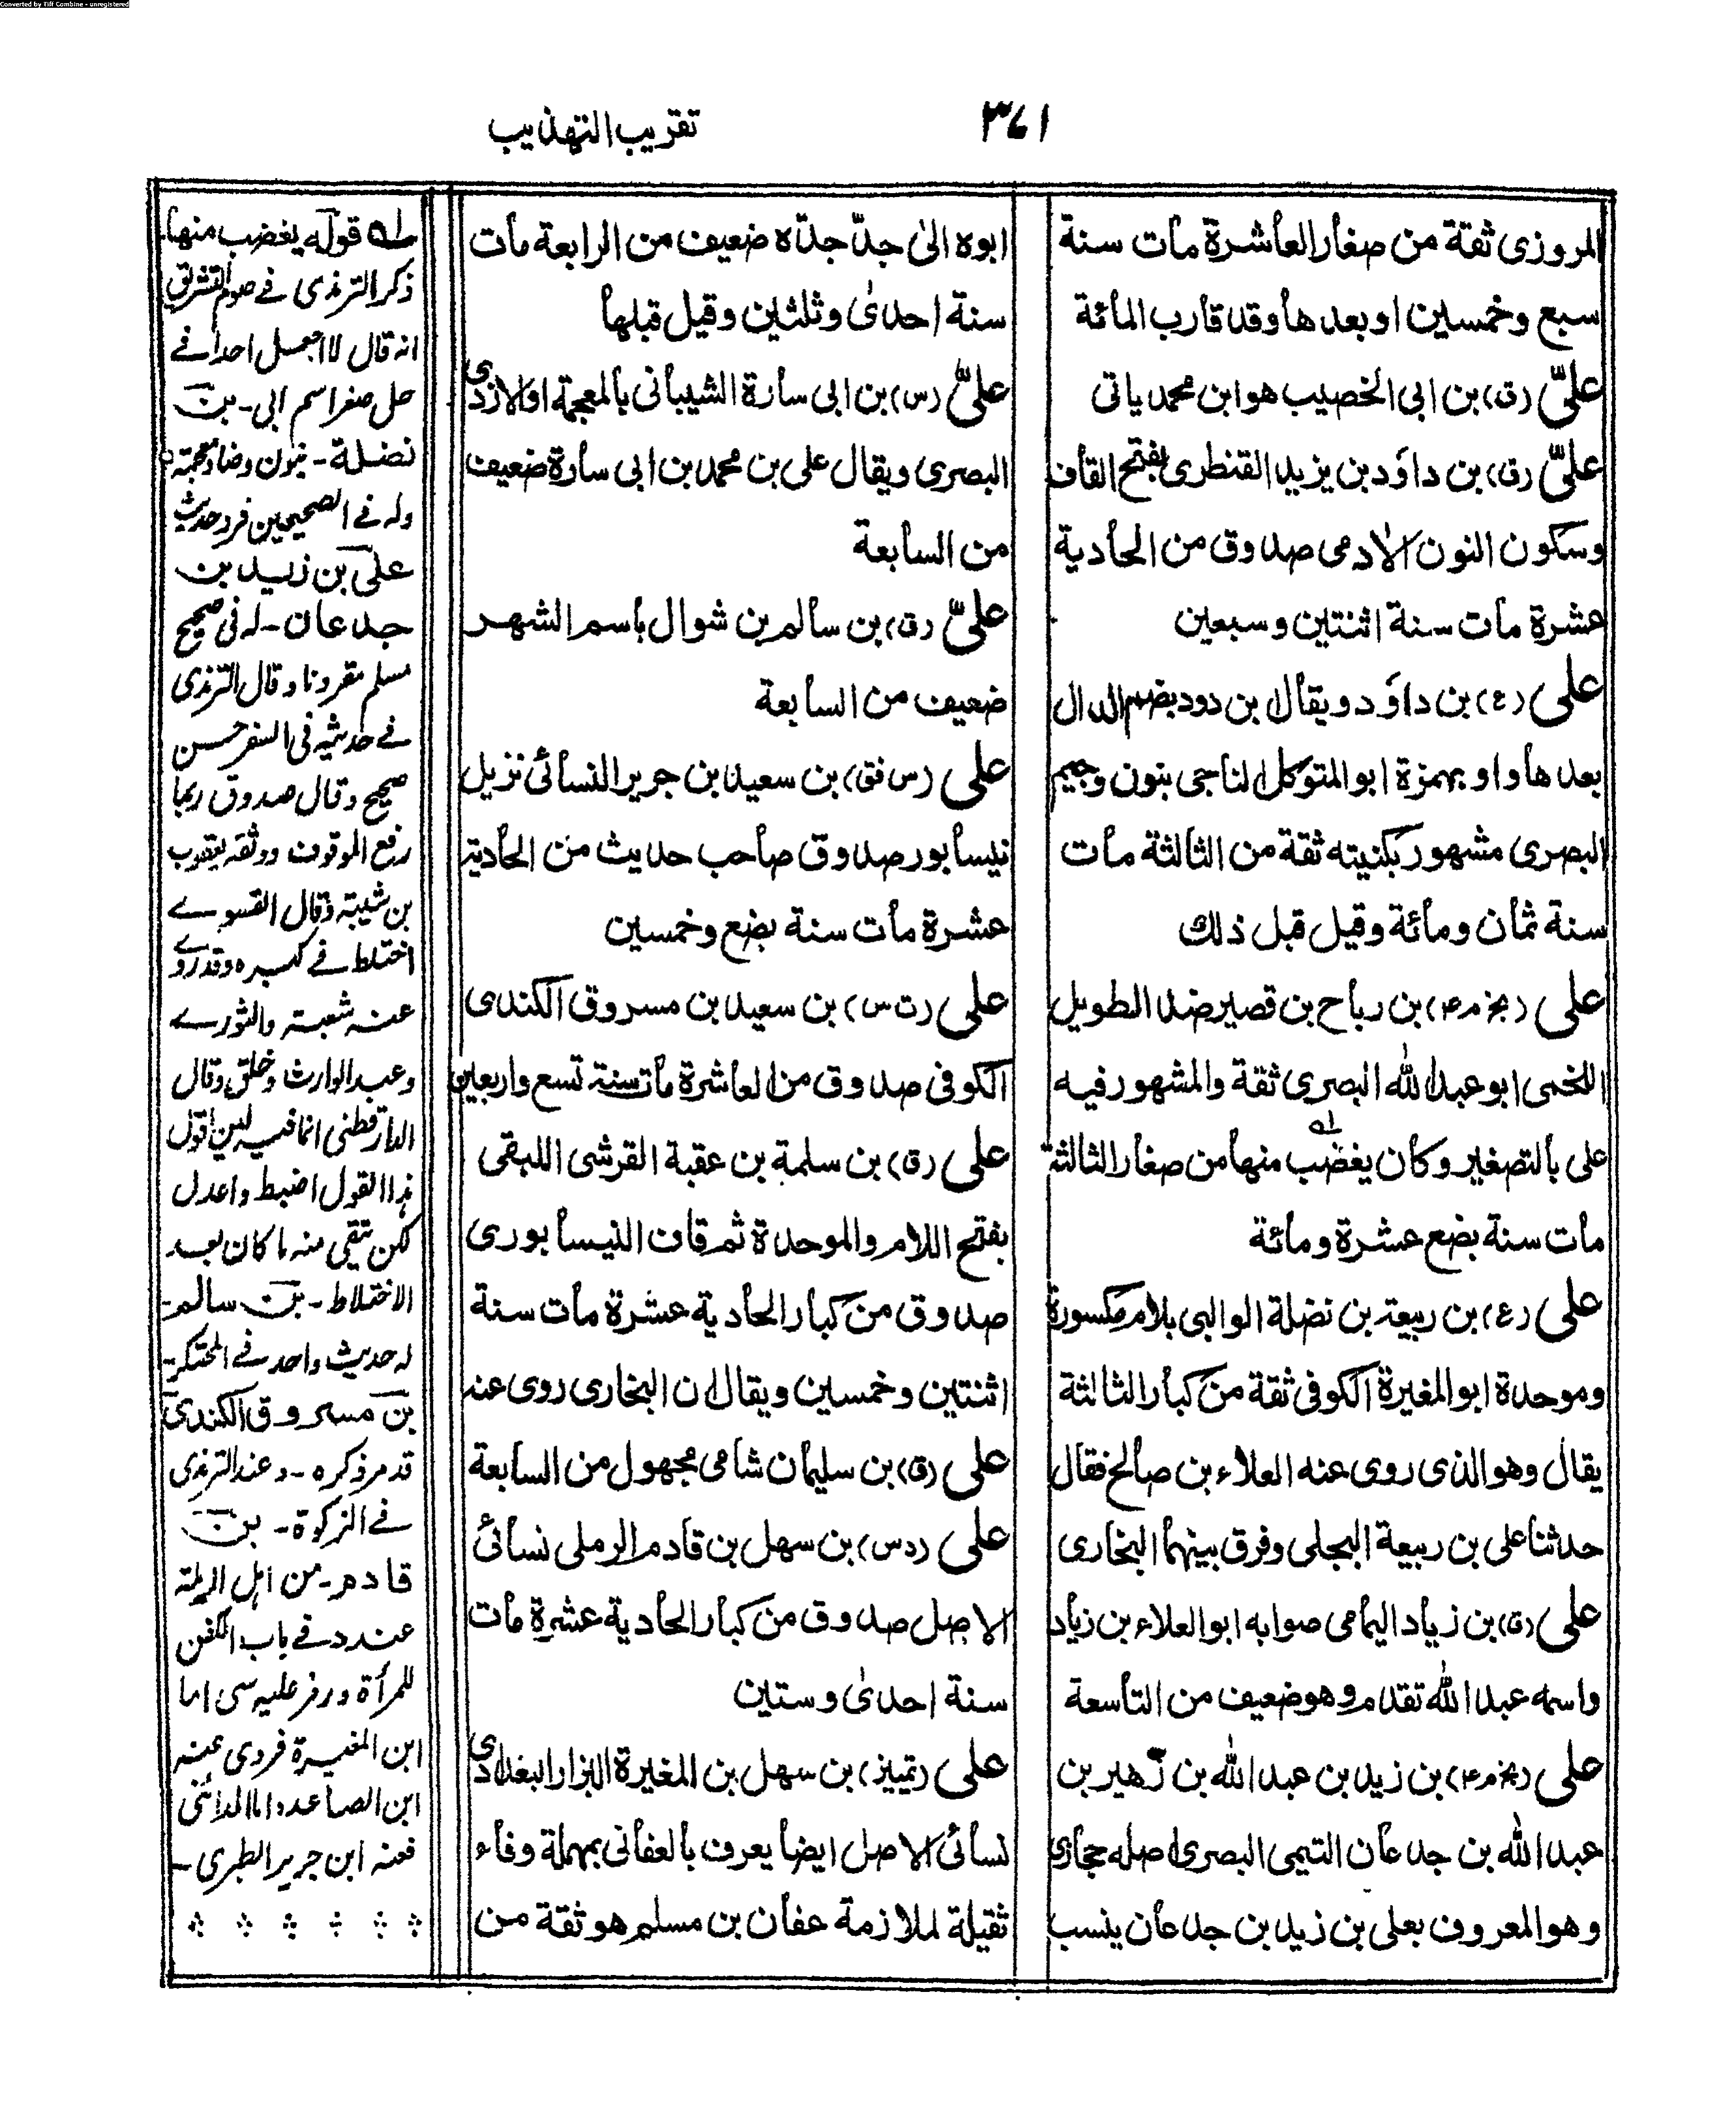 Converted by Tiff Combine - unregistered
٣٦١
تقريب التهذيب
المروزى ثقة من صغار العاشرة مات سنة
سبع وخمسين او بعدها وقد قارب المائة
علىّ (ق) بن ابى الخصيب هو ابن محمد ياتى
علىّ (ق) بن داؤد بن يزيد القنطرى بفتح القاف
وسكون النون الادمى صدوق من الحادية
عشرة مات سنة اثنتين وسبعين
على (ع) بن داؤد ويقال بن دود بضم الدال
بعدها واو بهمزة ابو المتوكل الناجى بنون وجيم
البصرى مشهور بكنيته ثقة من الثالثة مات
سنة ثمان ومائة وقيل قبل ذلك
على (بخ م ٤) بن رباح بن قصير ضد الطويل
اللخمى ابو عبد الله البصرى ثقة والمشهور فيه
على بالتصغير وكان يغضب منها من صغار الثالثة
مات سنة بضع عشرة ومائة
على (ع) بن ربيعة بن نضلة الوالبى بلام مكسورة
وموحدة ابو المغيرة الكوفى ثقة من كبار الثالثة
يقال وهو الذى روى عنه العلاء بن صالح فقال
حدثنا على بن ربيعة البجلى وفرق بينهما البخارى
على (ق) بن زياد اليمامى صوابه ابو العلاء بن زياد
واسمه عبد الله تقدم وهو ضعيف من التاسعة
على (بخ م ٤) بن زيد بن عبد الله بن زهير بن
عبد الله بن جدعان التيمى البصرى اصله حجازى
وهو المعروف بعلى بن زيد بن جدعان ينسب
ابوه الىٰ جدّ جدّه ضعيف من الرابعة مات
سنة احدىٰ وثلثين وقيل قبلها
علىّ (س) بن ابى سارة الشيبانى بالمعجمة او الازدى
البصرى ويقال على بن محمد بن ابى سارة ضعيف
من السابعة
علىّ (ق) بن سالم بن شوال باسم الشهر
ضعيف من السابعة
على (س فق) بن سعيد بن جرير النسائى نزيل
نيسابور صدوق صاحب حديث من الحادية
عشرة مات سنة بضع وخمسين
على (ت س) بن سعيد بن مسروق الكندى
الكوفى صدوق من العاشرة مات سنة تسع واربعين
على (ق) بن سلمة بن عقبة القرشى اللبقى
بفتح اللام والموحدة ثم قاف النيسابورى
صدوق من كبار الحادية عشرة مات سنة
اثنتين وخمسين ويقال ان البخارى روى عنه
على (ق) بن سليمان شامى مجهول من السابعة
على (د س) بن سهل بن قادم الرملى نسائى
الاصل صدوق من كبار الحادية عشرة مات
سنة احدىٰ وستين
على (تمييز) بن سهل بن المغيرة البزار البغدادى
نسائى الاصل ايضا يعرف بالعفانى بمهملة وفاء
ثقيلة لملازمة عفان بن مسلم هو ثقة من
له قوله يغضب منها
ذكر الترمذى فے صوم التشريق
انه قال لا اجعل احدا فے
حل صغر اسم ابى - بن
نضلة - بنون وضاد معجمة
وله فے الصحيحين فرد حديث
على بن زيد بن
جدعان - له فى صحيح
مسلم مقرونا وقال الترمذى
فے حديثه فى السفر حسن
صحيح وقال صدوق ربما
رفع الموقوف ووثقه يعقوب
بن شيبة وقال الفسوے
اختلط فے كبره وقد روے
عنه شعبة والثورے
وعبد الوارث وخلق وقال
الدارقطنى انما فيه لين اقول
هذا القول اضبط واعدل
لكن تتقى منه ما كان بعد
الاختلاط - بن سالم -
له حديث واحد فے المحتكر -
بن مسروق الكندى
قد مر ذكره - وعند الترمذى
فے الزكوة - بن
قادم - من اهل الرملة
عند د فے باب الكفن
للمرأة ورمز عليه سى اما
ابن المغيرة فروى عنه
ابن الصاعد واما المدائنى
فعنه ابن جرير الطبرى -